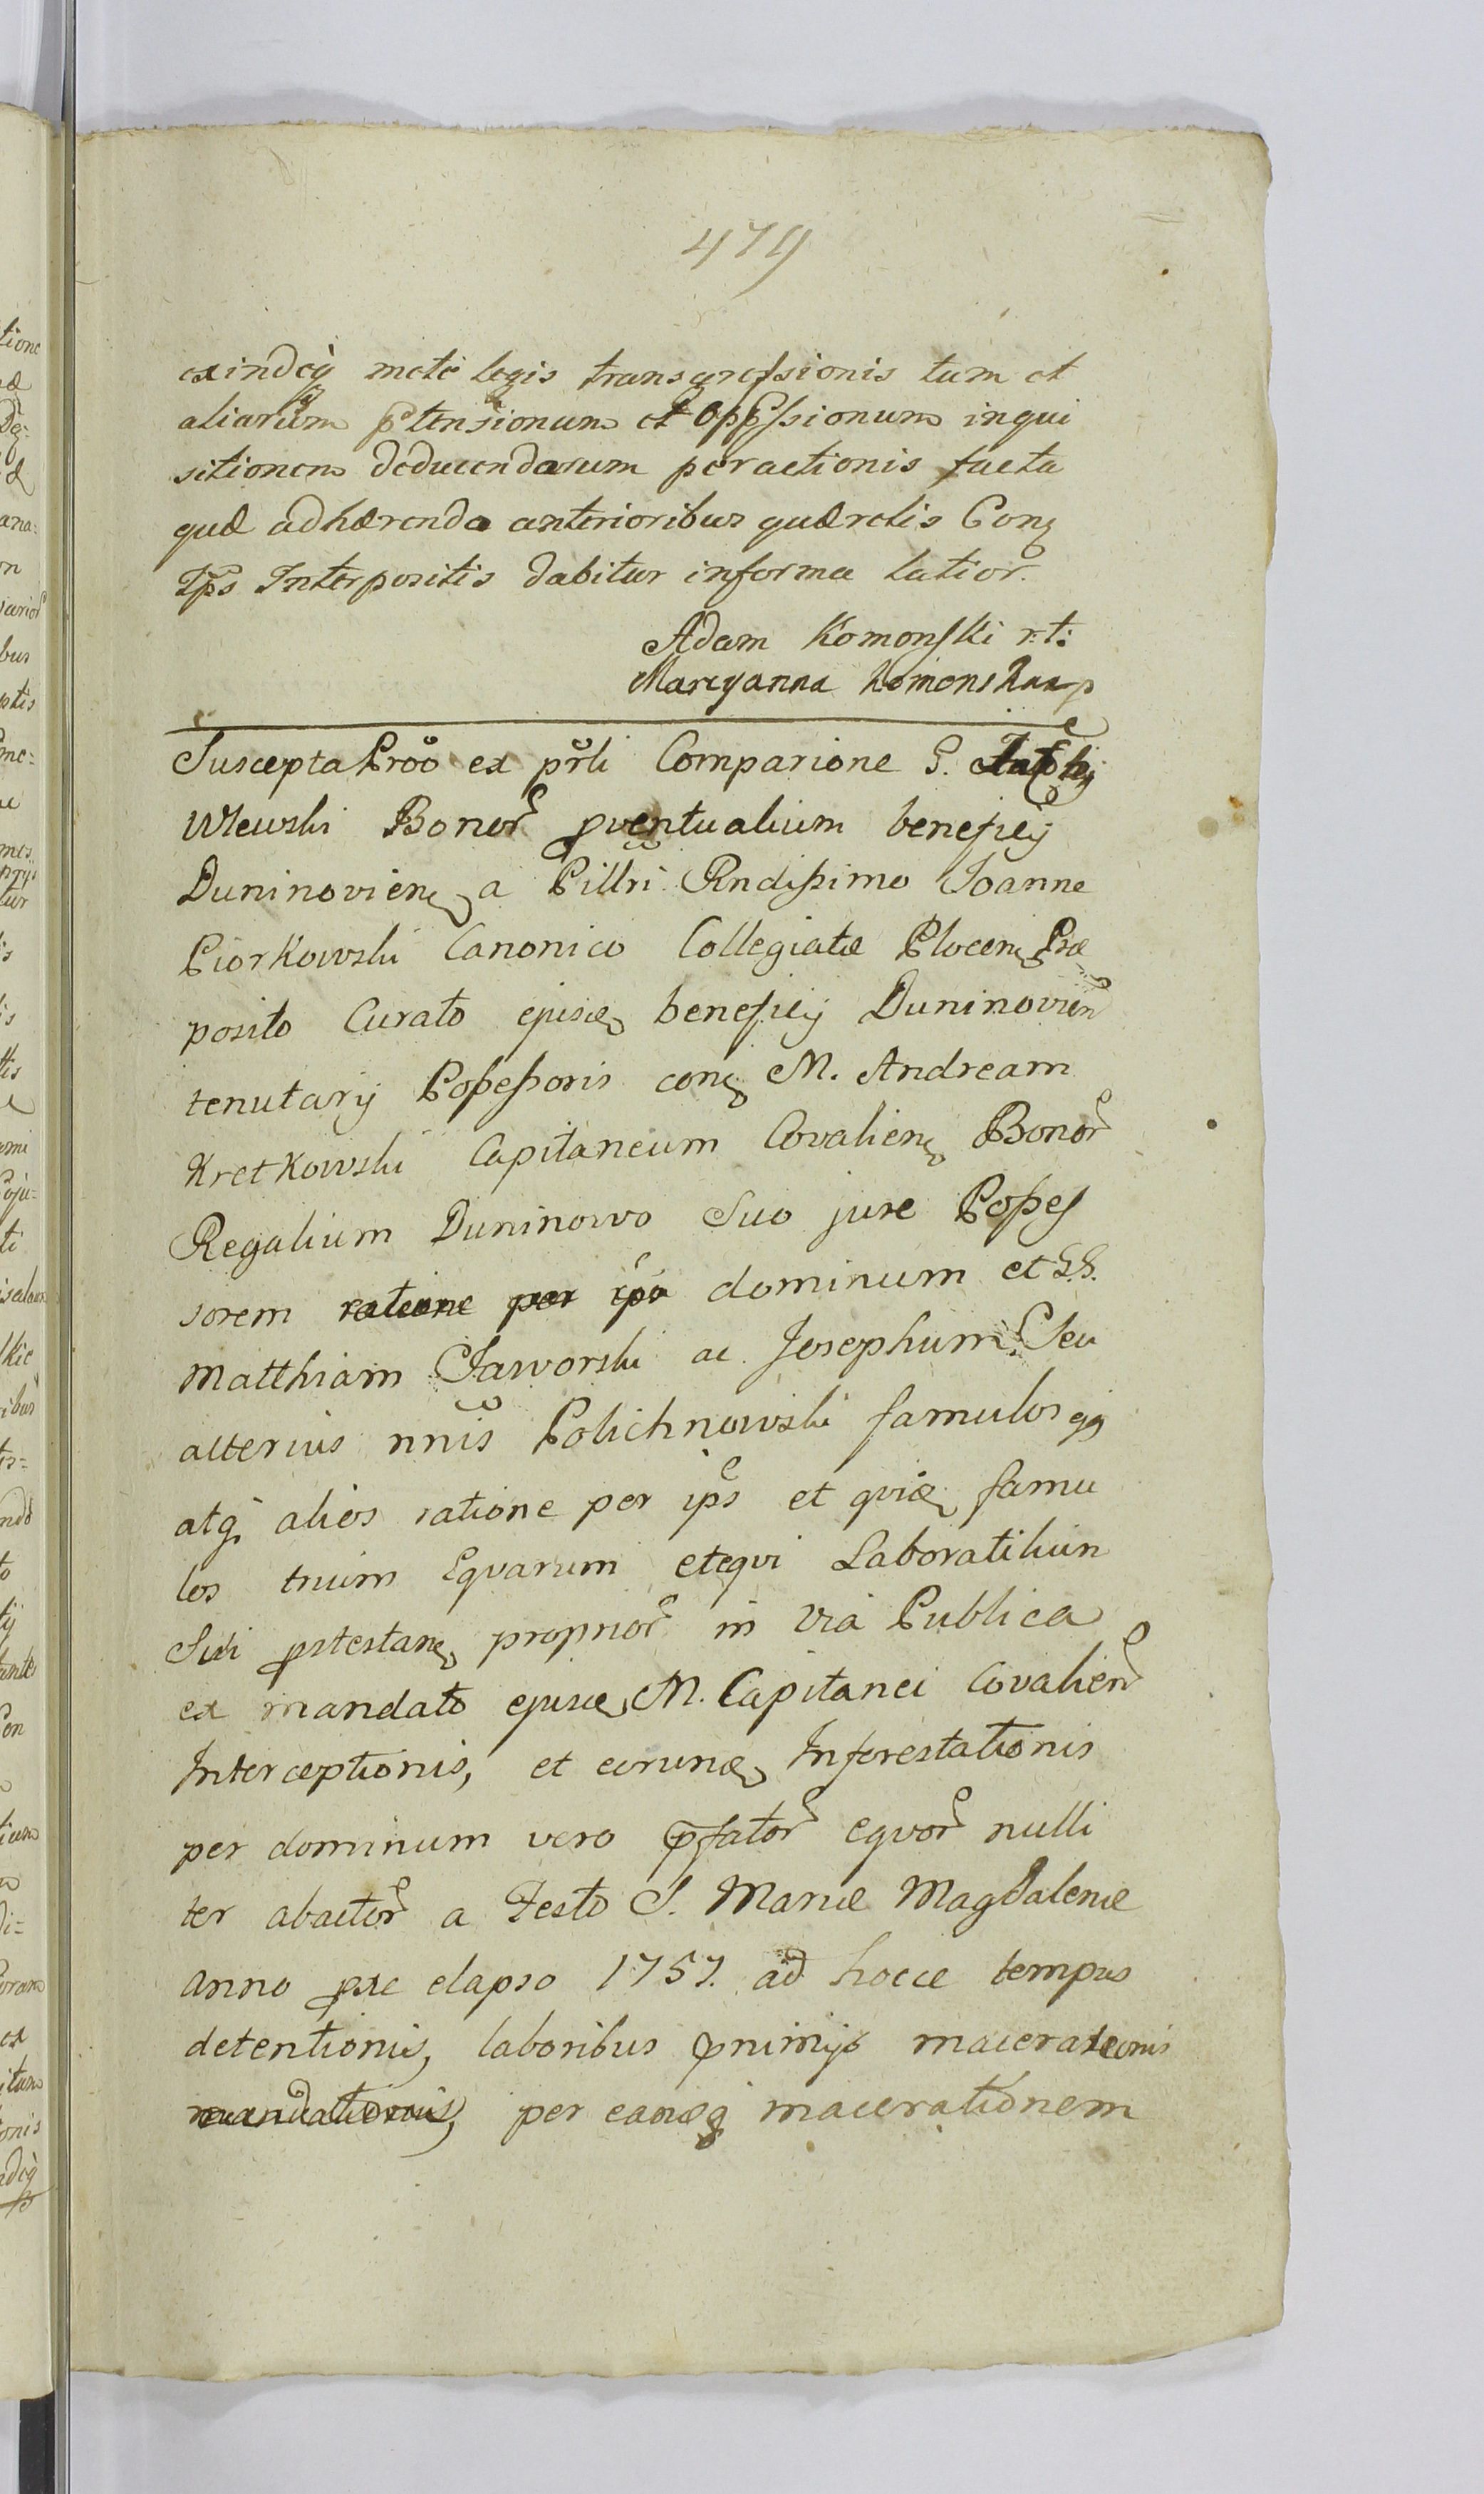 479
exindeq; mete legis transgressionis tum et
aliarum Ptensionum et Oppssionum inqui
sitionem deducendarum peractionis facta
quæ adhærendo anterioribus quærelis Conq
Ips Interpositis dabitur informa latior.
Adam Komonski rt:
Maryanna Komonska p
Suscepta Proo ex prli Comparione G.
Wlewski Bonor pventualium beneficij
Duninovien a Pillri Rndissimo Joanne
Piorkowski Canonico Collegiatæ Plocen Præ
posito Curato ejusd beneficij Duninovien
tenutarij Possessoris conq M. Andream
Kretkowski Capitaneum Covalien Bonor
Regalium Duninowo Suo jure Posses
sorem ratione per ipm dominum et GG.
Matthiam Jaworski ac Josephum Seu
alterius nnis Polichnowski famulos qq
atq alios ratione per ips et gviæ famu
los trium Eqvarum et eqvi Laboratilium
Sui prtestan proprior in via Publica
ex mandato ejusd M. Capitanei Covalien
Interceptionis, et eorund Inferestationis
per dominum vero pfator eqvor nulli
ter abactor a Festo S. Mariæ Magdalenæ
anno pxe elapso 1757. ad hocce tempus
detentionis, laboribus pnimijs macerationis
per eandq macerationem